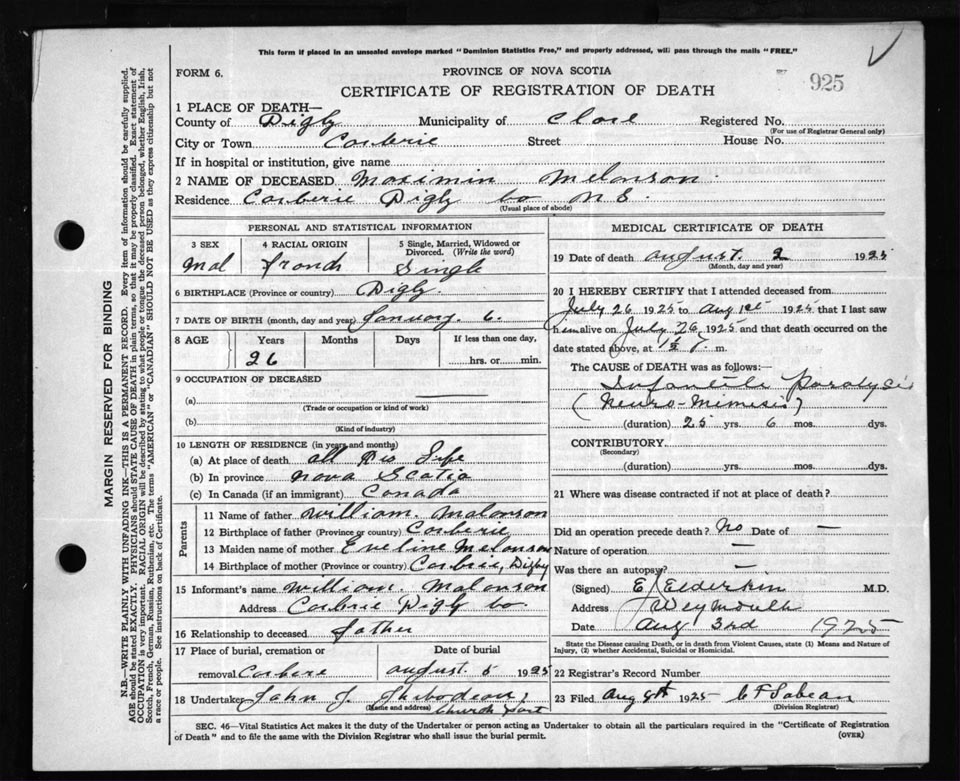 This form if placed in an unsealed envelope marked "Dominion Statistics Free," and properly addressed, will pass through the mails "FREE."
FORM 6.
PROVINCE OF NOVA SCOTIA
925
CERTIFICATE OF REGISTRATION OF DEATH
1 PLACE OF DEATH—
County of Digby Municipality of Clare Registered No.
(For use of Registrar General only)
City or Town Corberie Street House No.
If in hospital or institution, give name
2 NAME OF DECEASED Maximin Melonson
Residence Corberie Digby Co N S.
(Usual place of abode)
PERSONAL AND STATISTICAL INFORMATION
3 SEX 4 RACIAL ORIGIN 5 Single, Married, Widowed or Divorced. (Write the word)
Mal Single
6 BIRTHPLACE (Province or country) Digby.
7 DATE OF BIRTH (month, day and year) January. 6.
8 AGE Years Months Days If less than one day,
26 hrs. or min.
9 OCCUPATION OF DECEASED
(a)
(Trade or occupation or kind of work)
(b)
(Kind of industry)
10 LENGTH OF RESIDENCE (in years and months)
(a) At place of death all His Life
(b) In province Nova Scotia
(c) In Canada (if an immigrant) Canada
Parents
11 Name of father William. Malonson
12 Birthplace of father (Province or country) Corberie
13 Maiden name of mother Eveline Melonson
14 Birthplace of mother (Province or country) Digby
15 Informant's name William. Malonson
Address Digby Co.
16 Relationship to deceased father
17 Place of burial, cremation or removal Date of burial
august 5 1925
18 Undertaker John J. Thibodeau,
(Name and address) Church Point
MEDICAL CERTIFICATE OF DEATH
19 Date of death august. 2 1925
(Month, day and year)
20 I HEREBY CERTIFY that I attended deceased from
July 26 1925 to Aug 1st 1925 that I last saw
him alive on July 26 1925 and that death occurred on
date stated above, at m.
The CAUSE of DEATH was as follows:
Infantile Paralysis
(Neuro-Mimesis)
(duration) 25 yrs. 6 mos. dys.
CONTRIBUTORY
(Secondary)
(duration) yrs. mos. dys.
21 Where was disease contracted if not at place of death?
Did an operation precede death? No Date of —
Nature of operation —
Was there an autopsy? —
(Signed) E Elderkin M.D.
Address Weymouth
Date Aug 3rd 1925
State the Disease causing Death, or in death from Violent Causes, state (1) Means and Nature of Injury, (2) whether Accidental, Suicidal or Homicidal.
22 Registrar's Record Number
23 Filed Aug 8th 1925 C F Sabean
(Division Registrar)
SEC. 46—Vital Statistics Act makes it the duty of the Undertaker or person acting as Undertaker to obtain all the particulars required in the "Certificate of Registration
of Death" and to file the same with the Division Registrar who shall issue the burial permit.
(OVER)
MARGIN RESERVED FOR BINDING
N.B.—WRITE PLAINLY WITH UNFADING INK—THIS IS A PERMANENT RECORD. Every item of information should be carefully supplied.
AGE should be stated EXACTLY. PHYSICIANS should STATE CAUSE OF DEATH in plain terms, so that it may be properly classified. Exact statement of
OCCUPATION is very important. RACIAL ORIGIN will be described by stating to what people or tongue the deceased person belonged, whether English, Irish,
Scotch, French, German, Russian, Ruthenian, etc. The terms "AMERICAN" or "CANADIAN" SHOULD NOT BE USED as they express citizenship but not
a race or people. See instructions on back of Certificate.